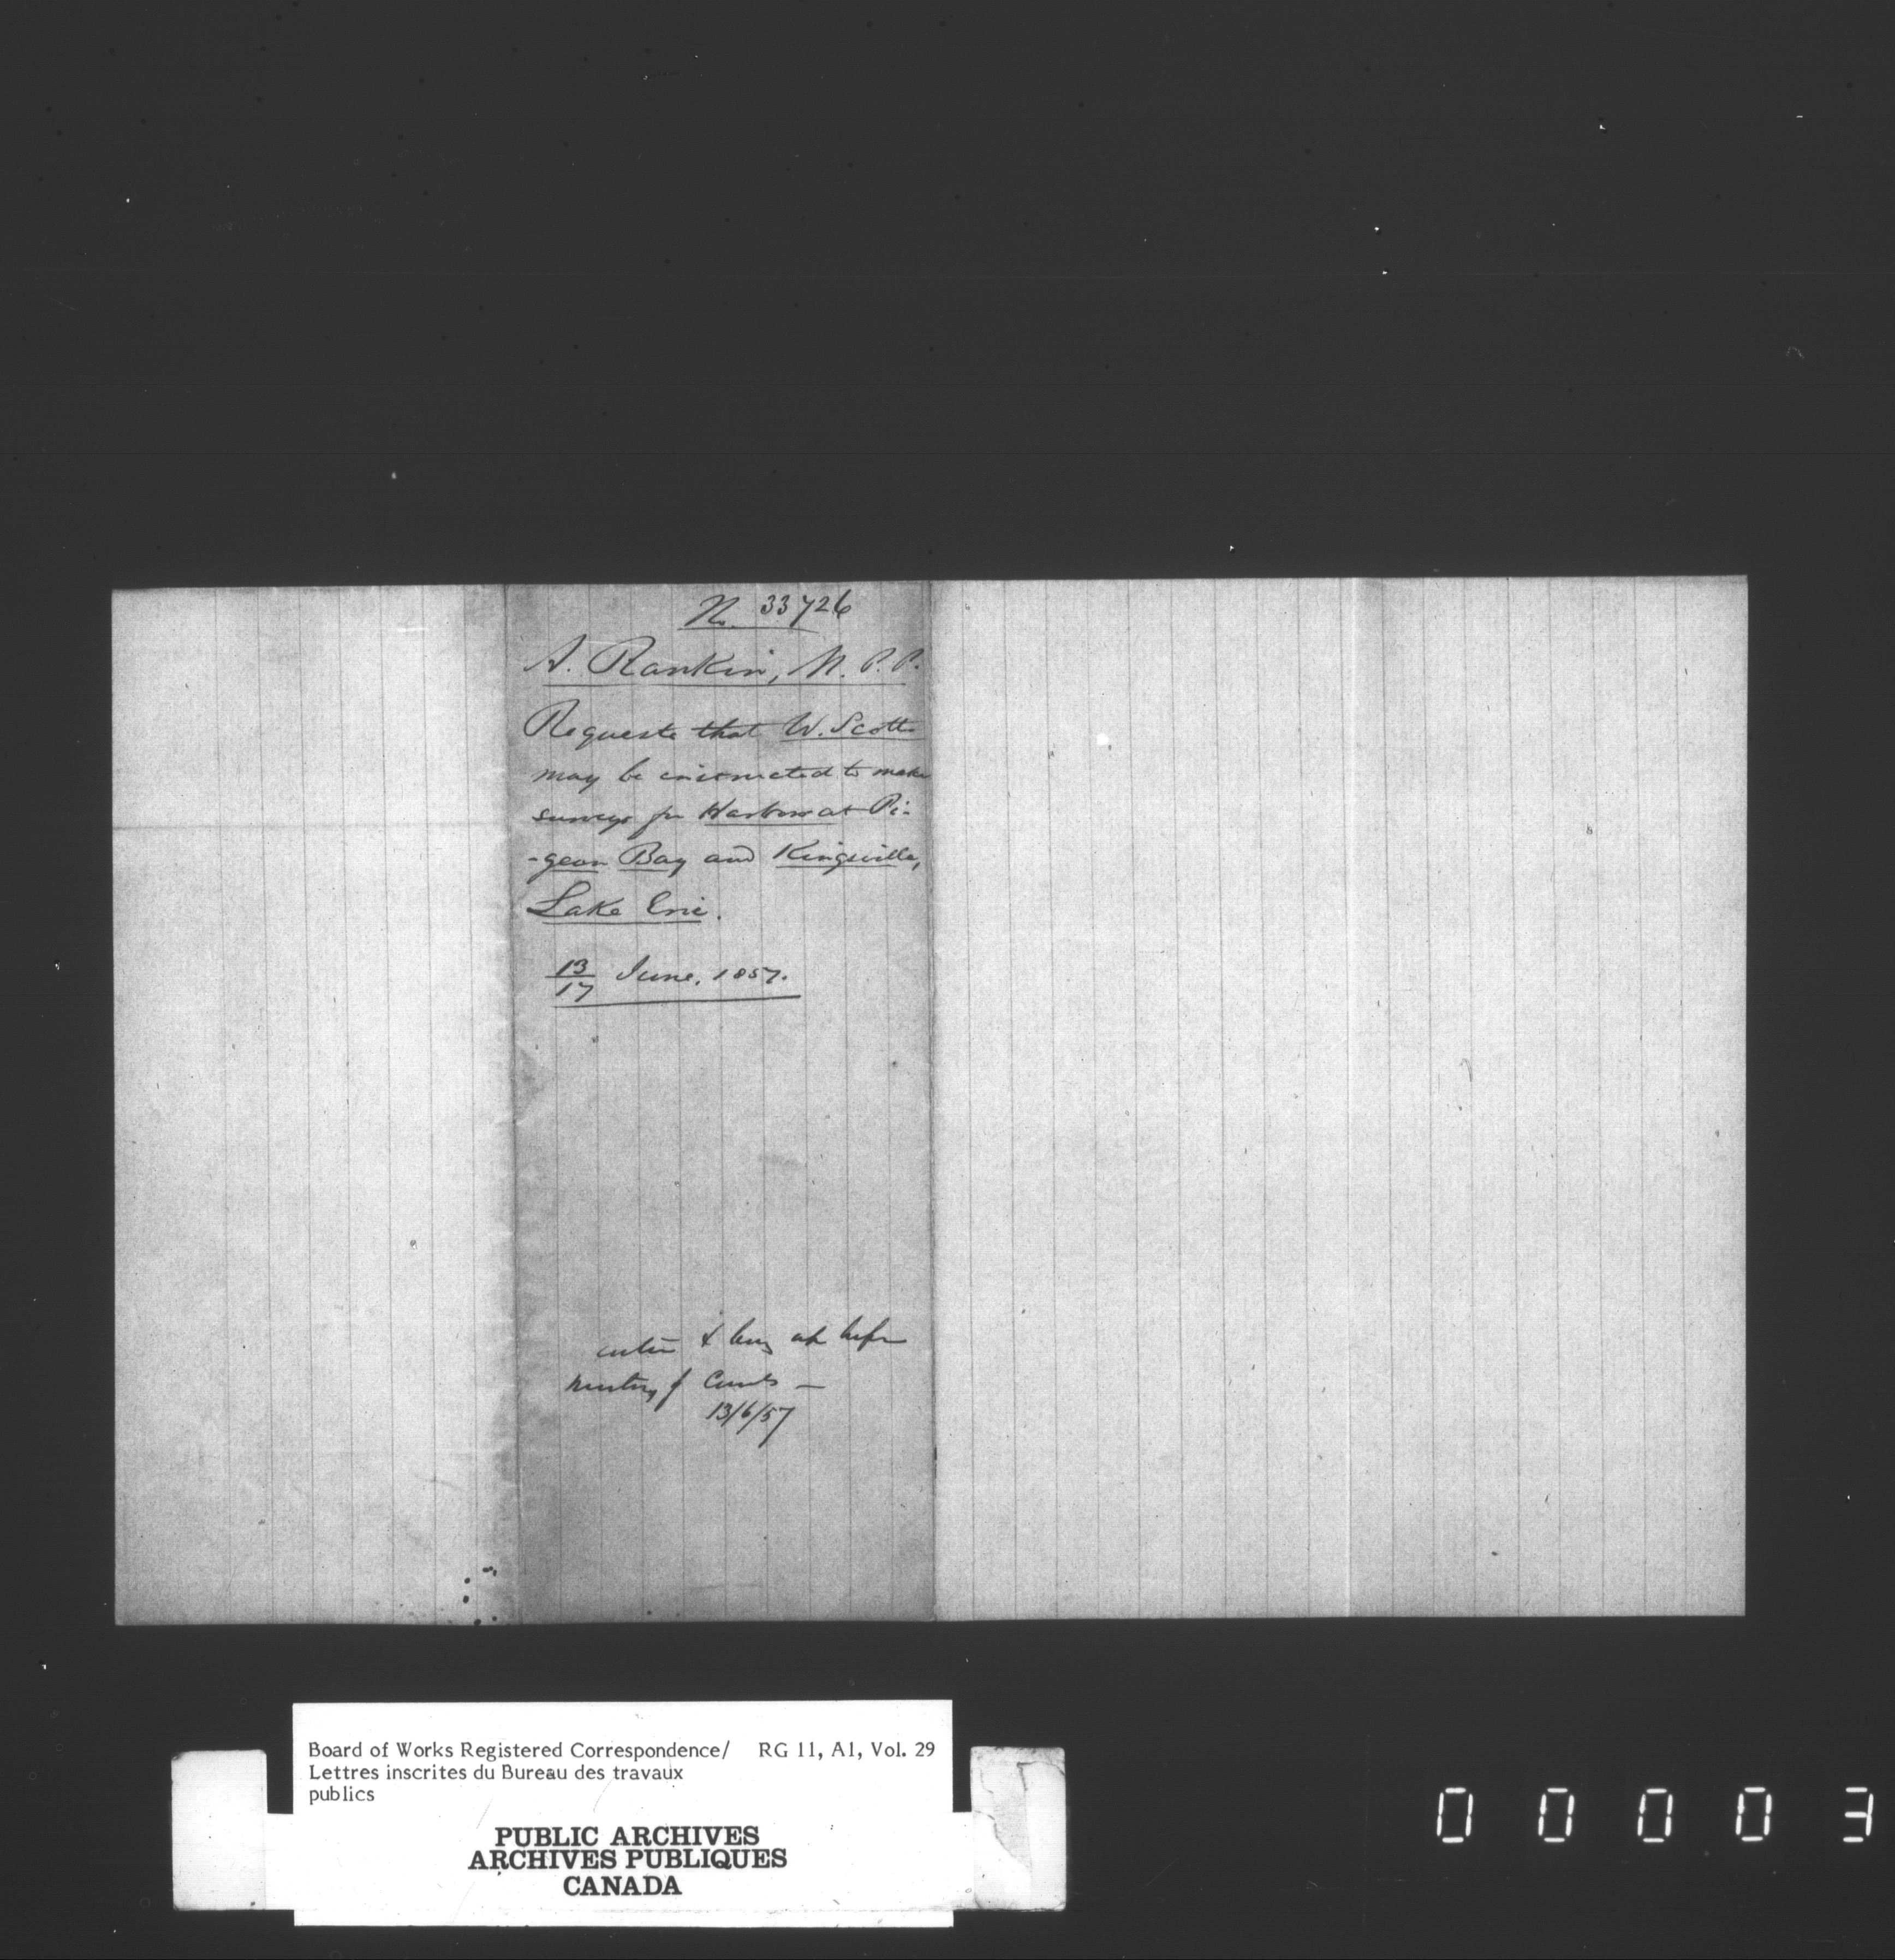 No. 33726
A. Rankin, M.P.P.
Requests that W. Scott
may be instructed to make
surveys for Harbour at Pi-
-geon Bay and Kingsville,
Lake Erie.
13/17 June, 1857.
enter & bring up before
meeting of
13/6/57
Board of Works Registered Correspondence/ RG 11, A1, Vol. 29
Lettres inscrites du Bureau des travaux
publics
PUBLIC ARCHIVES
ARCHIVES PUBLIQUES
CANADA
0 0 0 0 3